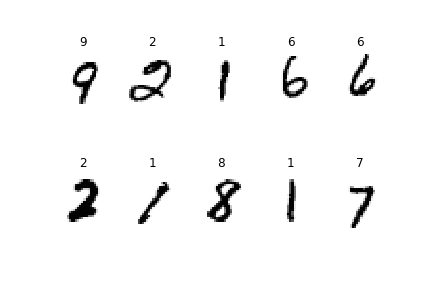 9 2 1 6 6
9 2 1 6 6
2 1 8 1 7
2 1 8 1 7